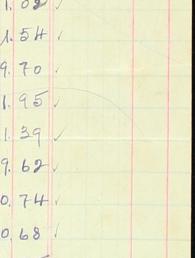 1.02 ✓
1.54 ✓
9.70 ✓
1.95 ✓
1.39 ✓
9.62 ✓
0.74 ✓
0.68 ✓